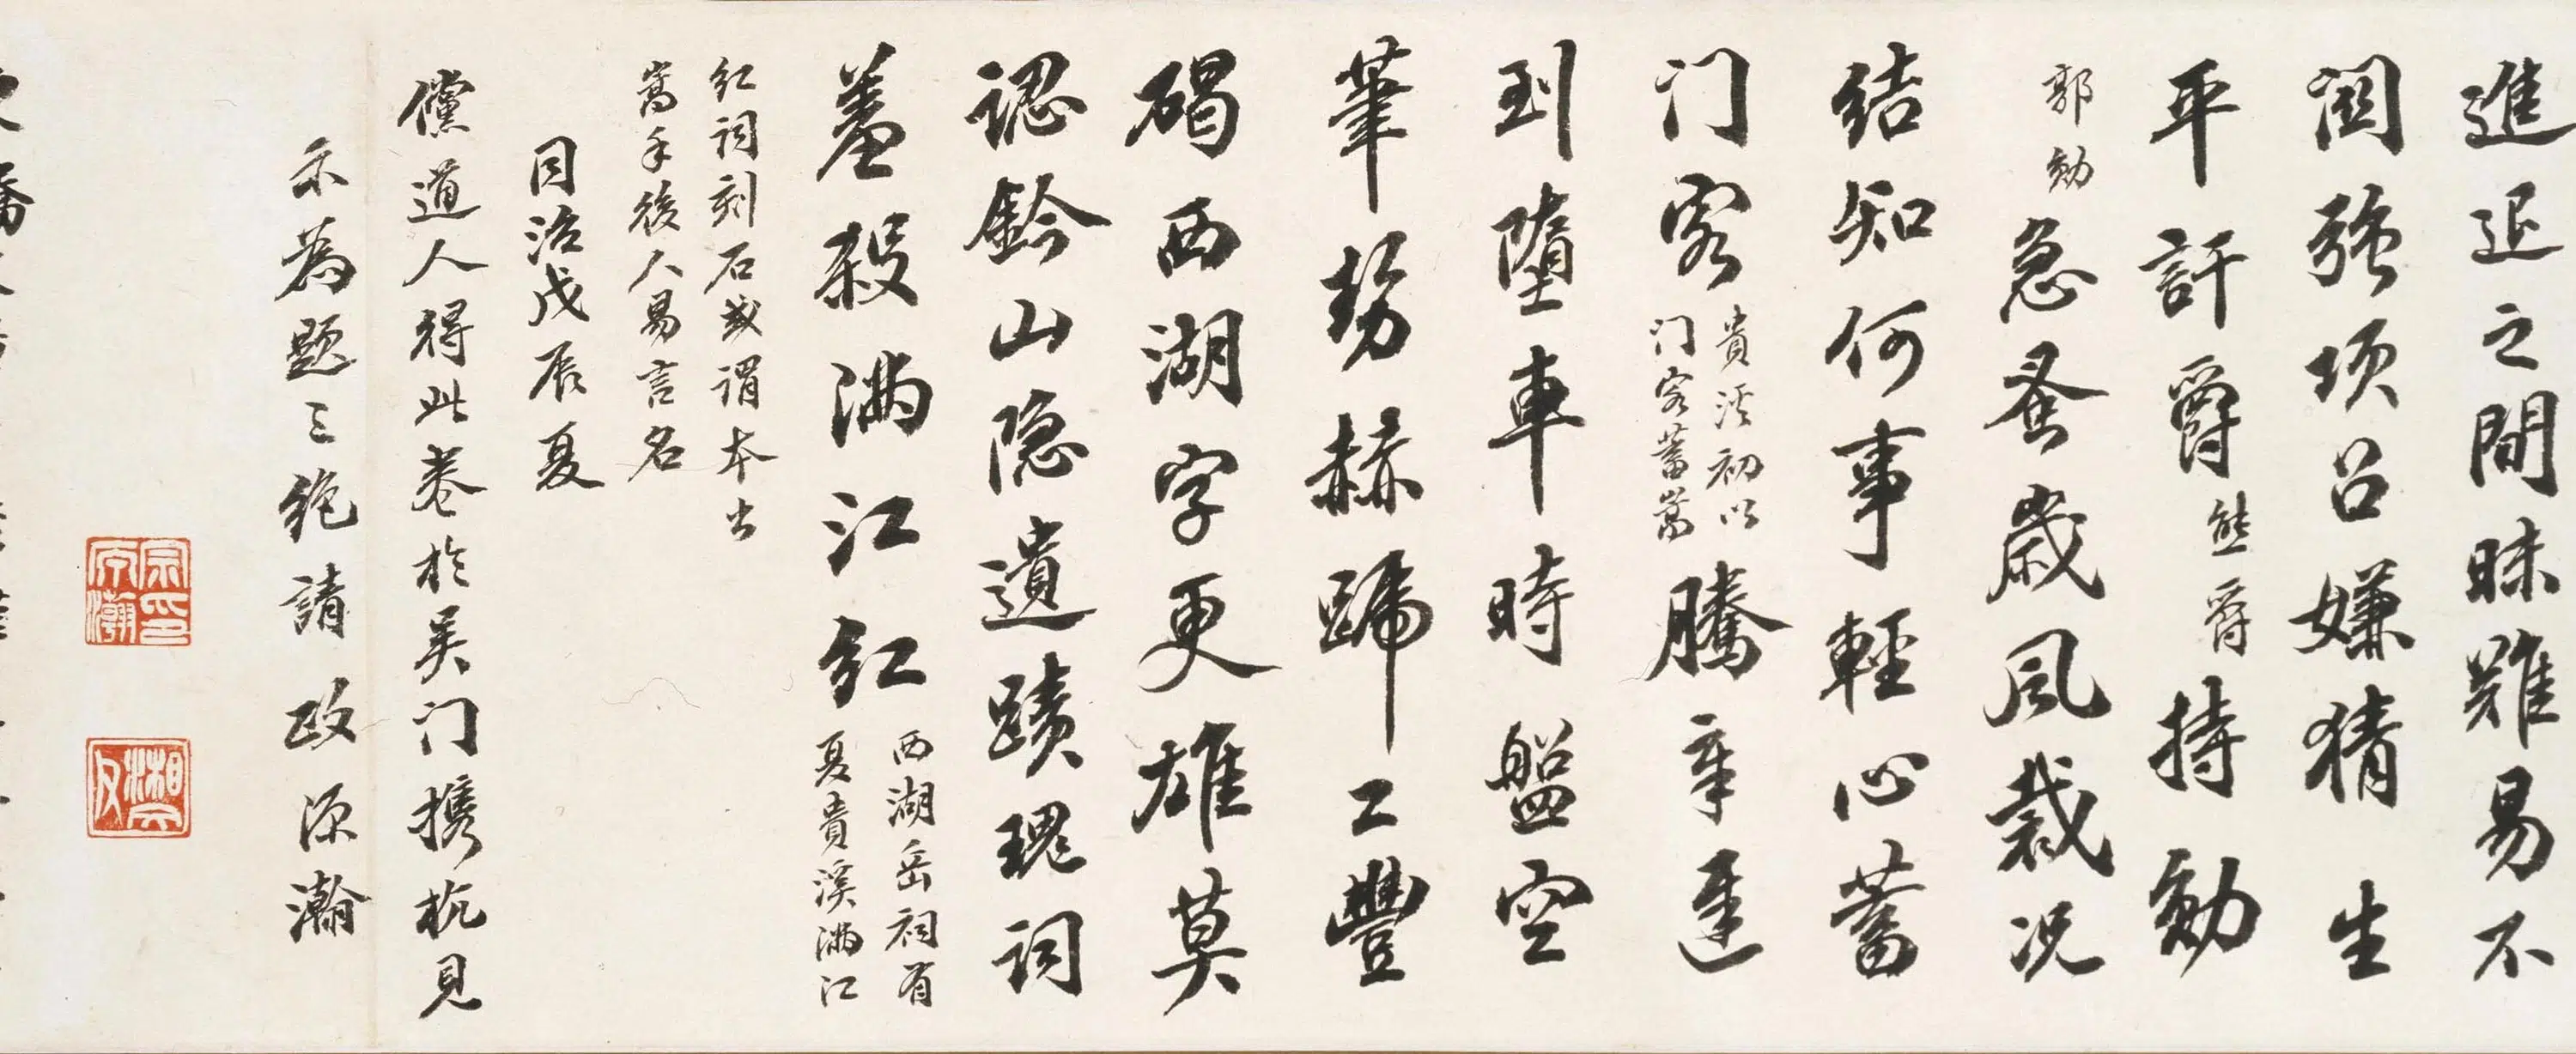 進退之間昧難易不
關強項召嫌猜生
平訐爵熊爵持勳
郭勛急蚤歲風裁況
結知何事輕心蓄
门客貴溪初以
门客蓄嵩騰章逮
到墮車時盤空
筆勢赫蹏工豐
碣西湖字更雄莫
認鈐山隐遺蹟瑰詞
羞殺满江红西湖岳祠有
夏貴溪满江
红詞刻石或谓本出
嵩手後人易言名
同治戊辰夏
儻道人得此卷於吴门携杭見
示為题三绝請政源瀚
宗印
源瀚
湘
文